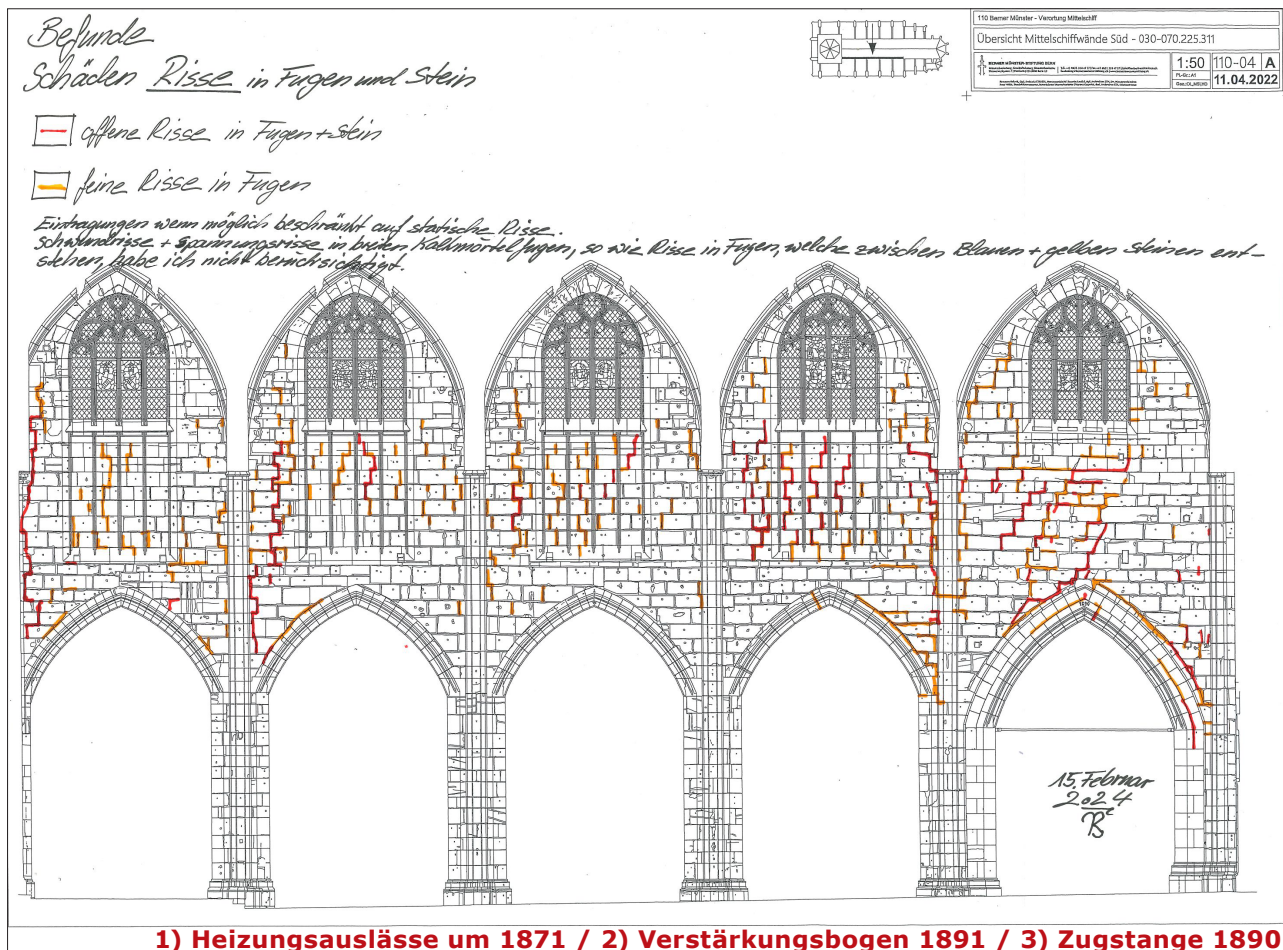 Befunde
Schäden Risse in Fugen und Stein
offene Risse in Fugen + Stein
feine Risse in Fugen
Eintragungen wenn möglich beschränkt auf statische Risse.
Schwundrisse + Spannungsrisse in breiten Kalkmörtelfugen, so wie Risse in Fugen, welche zwischen Blauen + gelben Steinen ent-
stehen, habe ich nicht berücksichtigt.
110 Berner Münster - Verortung Mittelschiff
Übersicht Mittelschiffwände Süd - 030-070.225.311
BERNER MÜNSTER-STIFTUNG BERN
1:50 110-04 A
11.04.2022
15. Februar
2024
1) Heizungsauslässe um 1871 / 2) Verstärkungsbogen 1891 / 3) Zugstange 1890